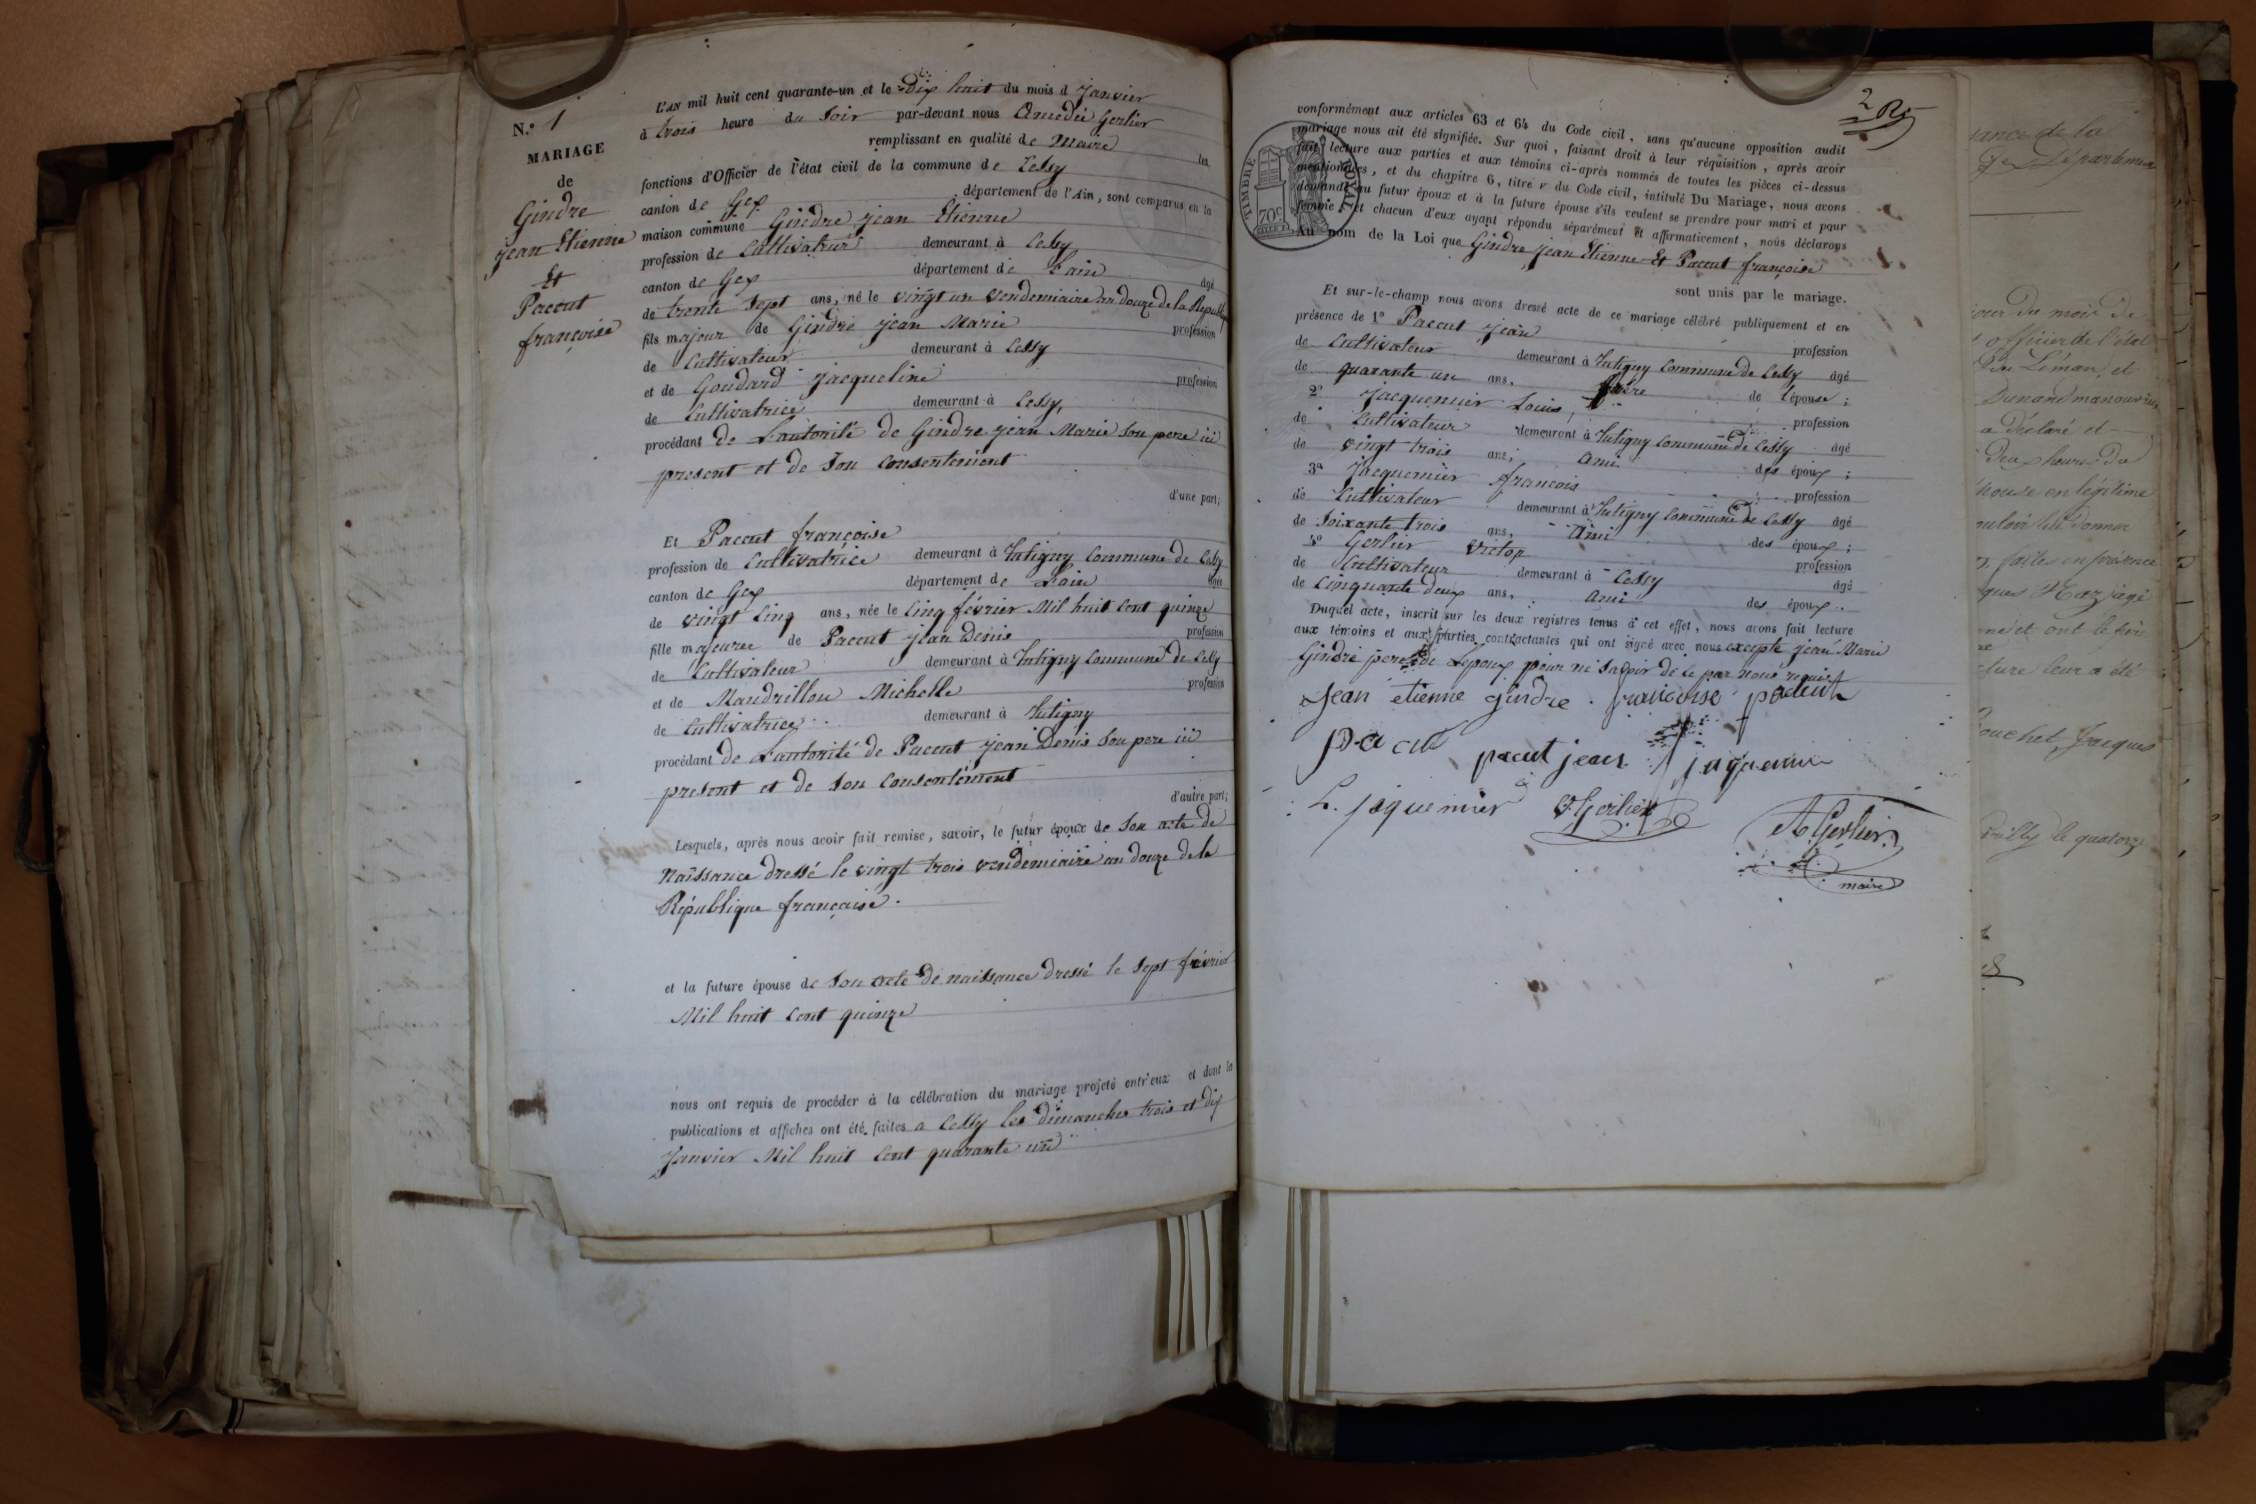 N.° 1
MARIAGE
de
Gindre
jean Etienne
Et
Pacout
françoise
L'AN mil huit cent quarante-un et le Dix huit du mois d Janvier
à trois heure du Soir par-devant nous Amédée Gerlier
remplissant en qualité de Maire les
fonctions d'Officier de l'état civil de la commune de Cessy
canton de Gex département de l'Ain, sont comparus en la
maison commune Gindre jean Etienne
profession de Cultivateur demeurant à Cessy
canton de Gex département de Lain âgé
de trente Sept ans, né le vingt un vendemiaire an douze de la Républ
fils majeur de Gindre jean Marie profession
de Cultivateur demeurant à Cessy
et de Goudard jacqueline profession
de Cultivatrice demeurant à Cessy,
procédant de L'autorité de Gindre jean Marie Son pere ici
present et de Son Consentement
d'une part;
Et Pacout françoise
profession de Cultivatrice demeurant à Tutigny Commune de Cessy
canton de Gex département de Lain âgée
de vingt Cinq ans, née le Cinq février Mil huit Cent quinze
fille majeure de Pacout jean Denis profession
de Cultivateur demeurant à Tutigny Commune de Cessy
et de Mandrillon Michelle profession
de Cultivatrice demeurant à Tutigny
procédant de L'autorité de Pacout jean Denis Son pere ici
present et de Son Consentement
d'autre part;
Lesquels, après nous avoir fait remise, savoir, le futur époux de Son acte de
Naissance dressé le vingt trois vendemiaire an douze de la
République française.
et la future épouse de Son acte de naissance dressé le Sept février
Mil huit Cent quinze
nous ont requis de procéder à la célébration du mariage projeté entr'eux et dont les
publications et affiches ont été faites a Cessy les dimanches trois et dix
Janvier Mil huit Cent quarante un
2
conformément aux articles 63 et 64 du Code civil, sans qu'aucune opposition audit
mariage nous ait été signifiée. Sur quoi, faisant droit à leur réquisition, après avoir
fait lecture aux parties et aux témoins ci-après nommés de toutes les pièces ci-dessus
mentionnées, et du chapitre 6, titre v du Code civil, intitulé Du Mariage, nous avons
demandé au futur époux et à la future épouse s'ils veulent se prendre pour mari et pour
femme, et chacun d'eux ayant répondu séparément et affirmativement, nous déclarons
Au nom de la Loi que Gindre jean Etienne Et Pacout françoise
TIMBRE ROYAL
70c
sont unis par le mariage.
Et sur-le-champ nous avons dressé acte de ce mariage célébré publiquement et en
présence de 1° Pacout jean profession
de Cultivateur demeurant à Tutigny Commune de Cessy âgé
de quarante un ans, frère de l'épouse;
2° Jacquemier Louis, profession
de Cultivateur demeurant à Tutigny Commune de Cessy âgé
de vingt trois ans, Ami des époux;
3° Jacquemier francois profession
de Cultivateur demeurant à Tutigny Commune de Cessy âgé
de Soixante trois ans, Ami des époux;
4° Gerlier Victor profession
de Cultivateur demeurant à Cessy âgé
de Cinquante deux ans, Ami des époux.
Duquel acte, inscrit sur les deux registres tenus à cet effet, nous avons fait lecture
aux témoins et aux parties contractantes qui ont signé avec nous excepté jean Marie
Gindre pere de Lepoux pour ne Savoir de ce par nous requis
jean etienne gindre. francoise pacout
pacut pacut jean jaquemier
L. jaquemier V. Gerlier A Gerlier
maire